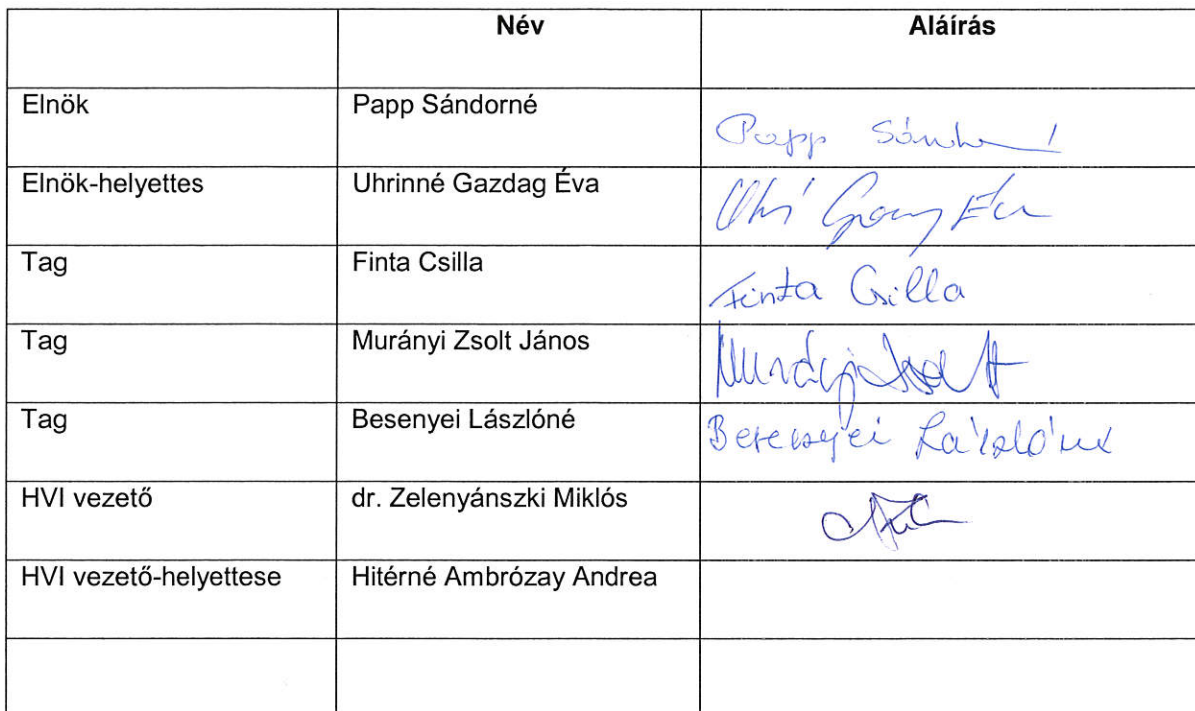 Név Aláírás
Elnök Papp Sándorné Papp Sándorné
Elnök-helyettes Uhrinné Gazdag Éva
Tag Finta Csilla Finta Csilla
Tag Murányi Zsolt János Murányi Zsolt
Tag Besenyei Lászlóné Besenyei Lászlóné
HVI vezető dr. Zelenyánszki Miklós
HVI vezető-helyettese Hitérné Ambrózay Andrea